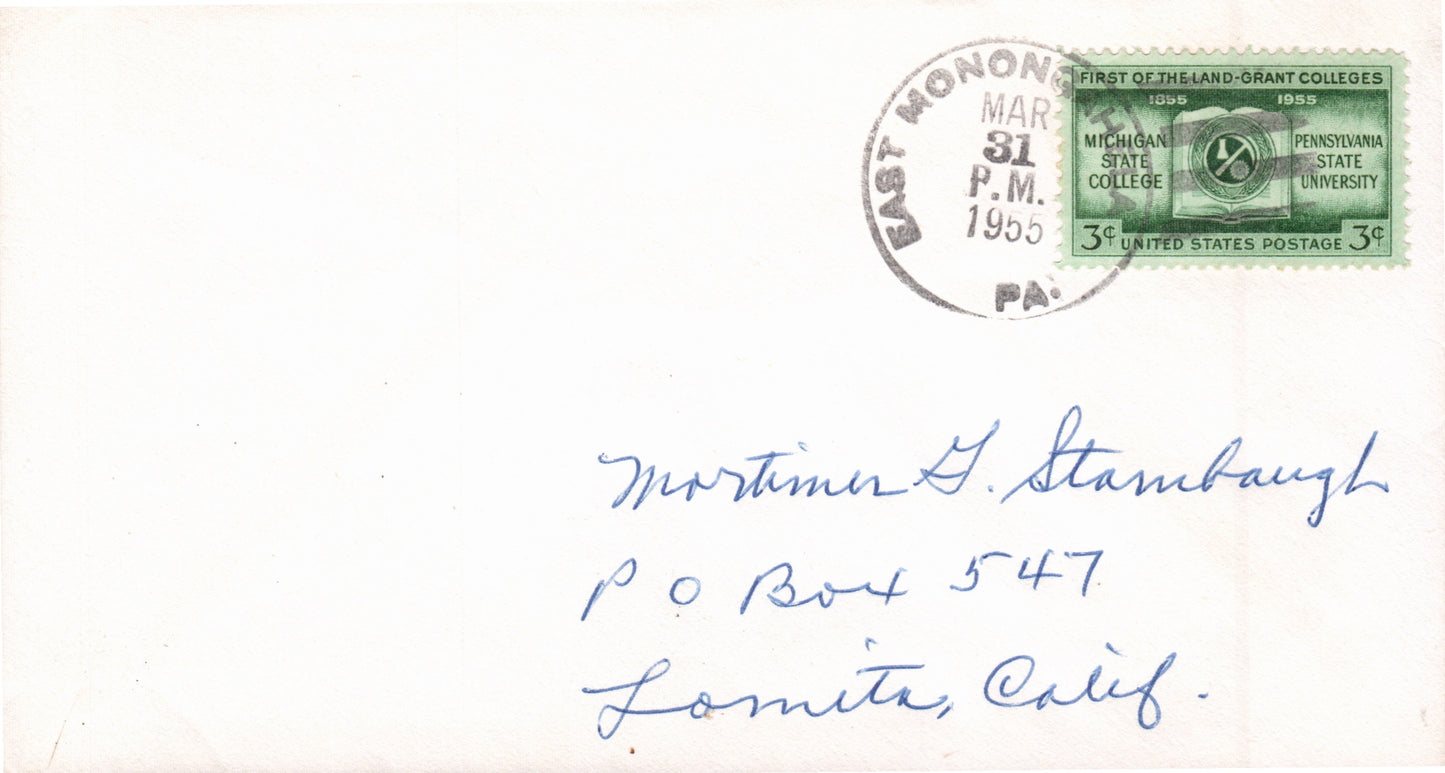 EAST MONONGAHELA
MAR
31
P.M.
1955
PA.
FIRST OF THE LAND-GRANT COLLEGES
1855 1955
MICHIGAN STATE COLLEGE
PENNSYLVANIA STATE UNIVERSITY
3¢ UNITED STATES POSTAGE 3¢
Mortimer G. Stambaugh
P O Box 547
Lomita, Calif.